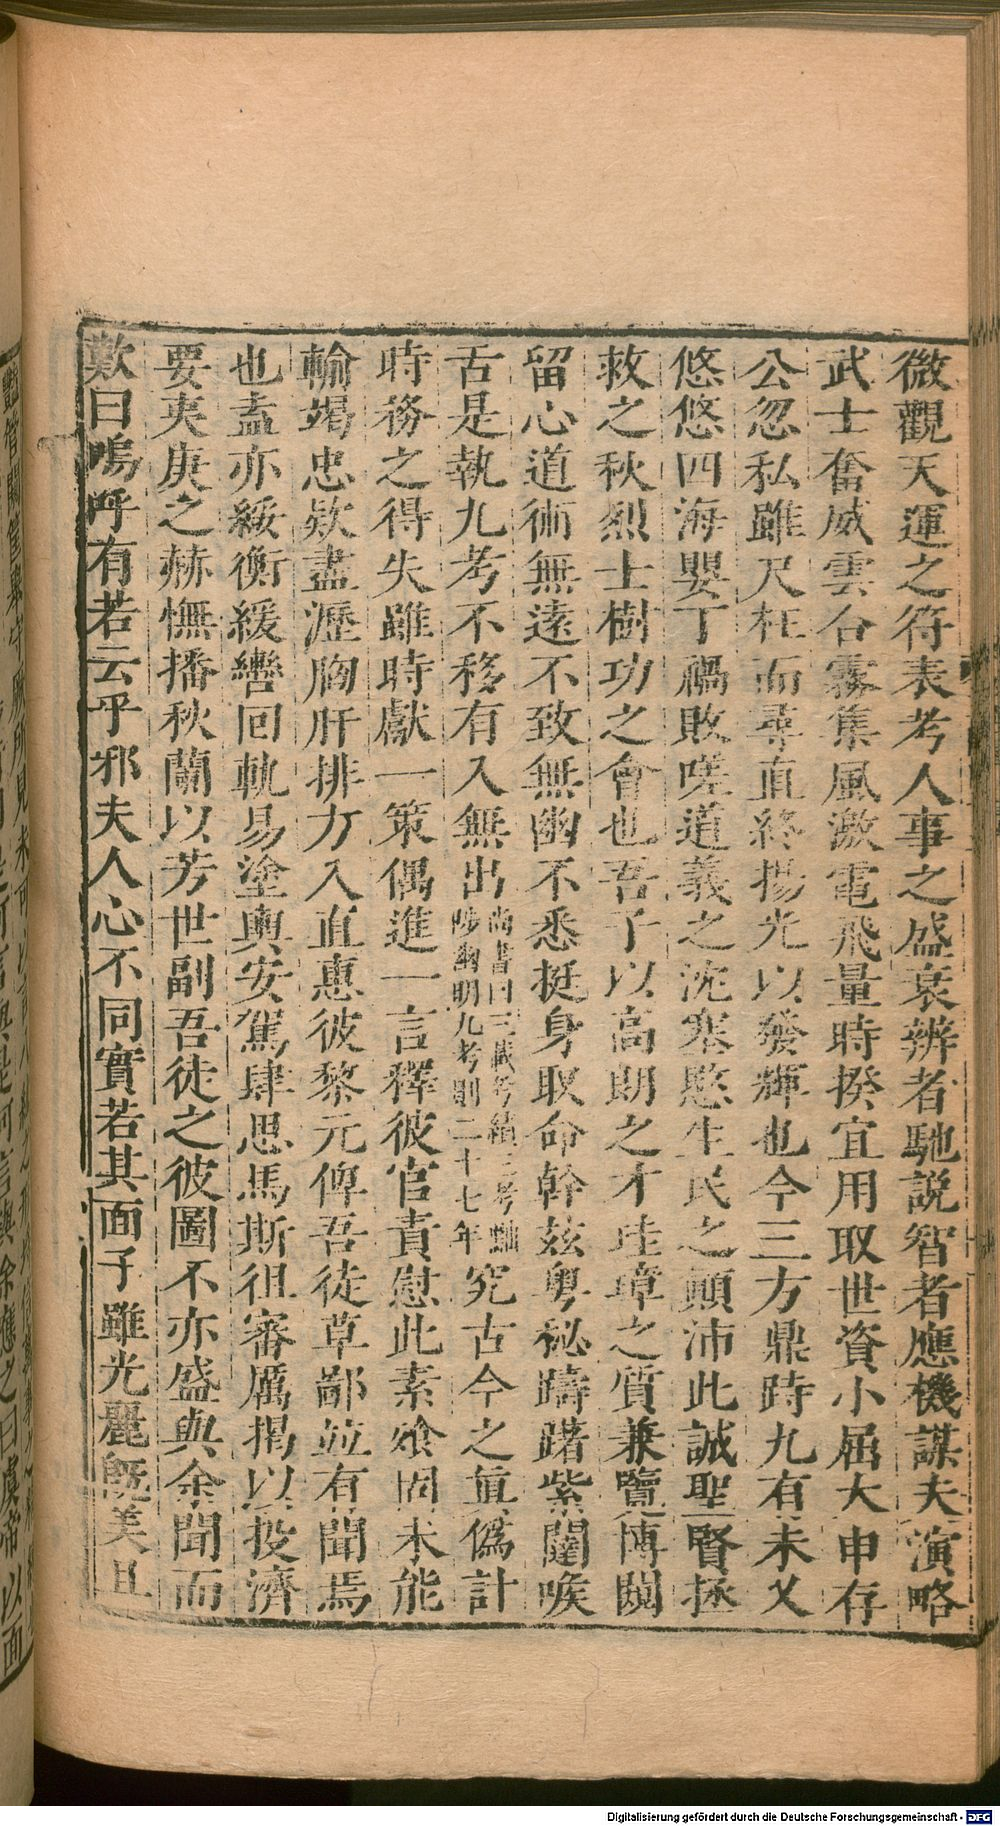 微觀天運之符表考人事之盛衰辨者馳説智者應機謀夫演略
武士奮威雲合霧集風激電飛量時揆宜用取世資小屈大申存
公忽私雖尺枉而尋直終揚光以發輝也今三方鼎跱九有未乂
悠悠四海嬰丁禍敗嗟道義之沈塞愍生民之顛沛此誠聖賢拯
救之秋烈士樹功之會也吾子以高朗之才珪璋之質兼覽博闚
留心道術無遠不致無幽不悉挺身取命幹兹奧祕躊躇紫闥喉
舌是執九考不移有入無出尚書曰三載考績三考黜陟幽明九考則二十七年究古今之真僞計
時務之得失雖時獻一策偶進一言釋彼官責慰此素飧固未能
輸竭忠款盡瀝胸肝排方入直惠彼黎元俾吾徒草鄙竝有聞焉
也盍亦綏衡緩轡回軌易塗輿安駕肆思馬斯徂審厲揭以投濟
要夷庚之赫憮播秋蘭以芳世副吾徒之彼圖不亦盛與余聞而
歎曰嗚呼有若云乎邪夫人心不同實若其面子雖光麗旣美且
虞帝以面
Digitalisierung gefördert durch die Deutsche Forschungsgemeinschaft - DFG